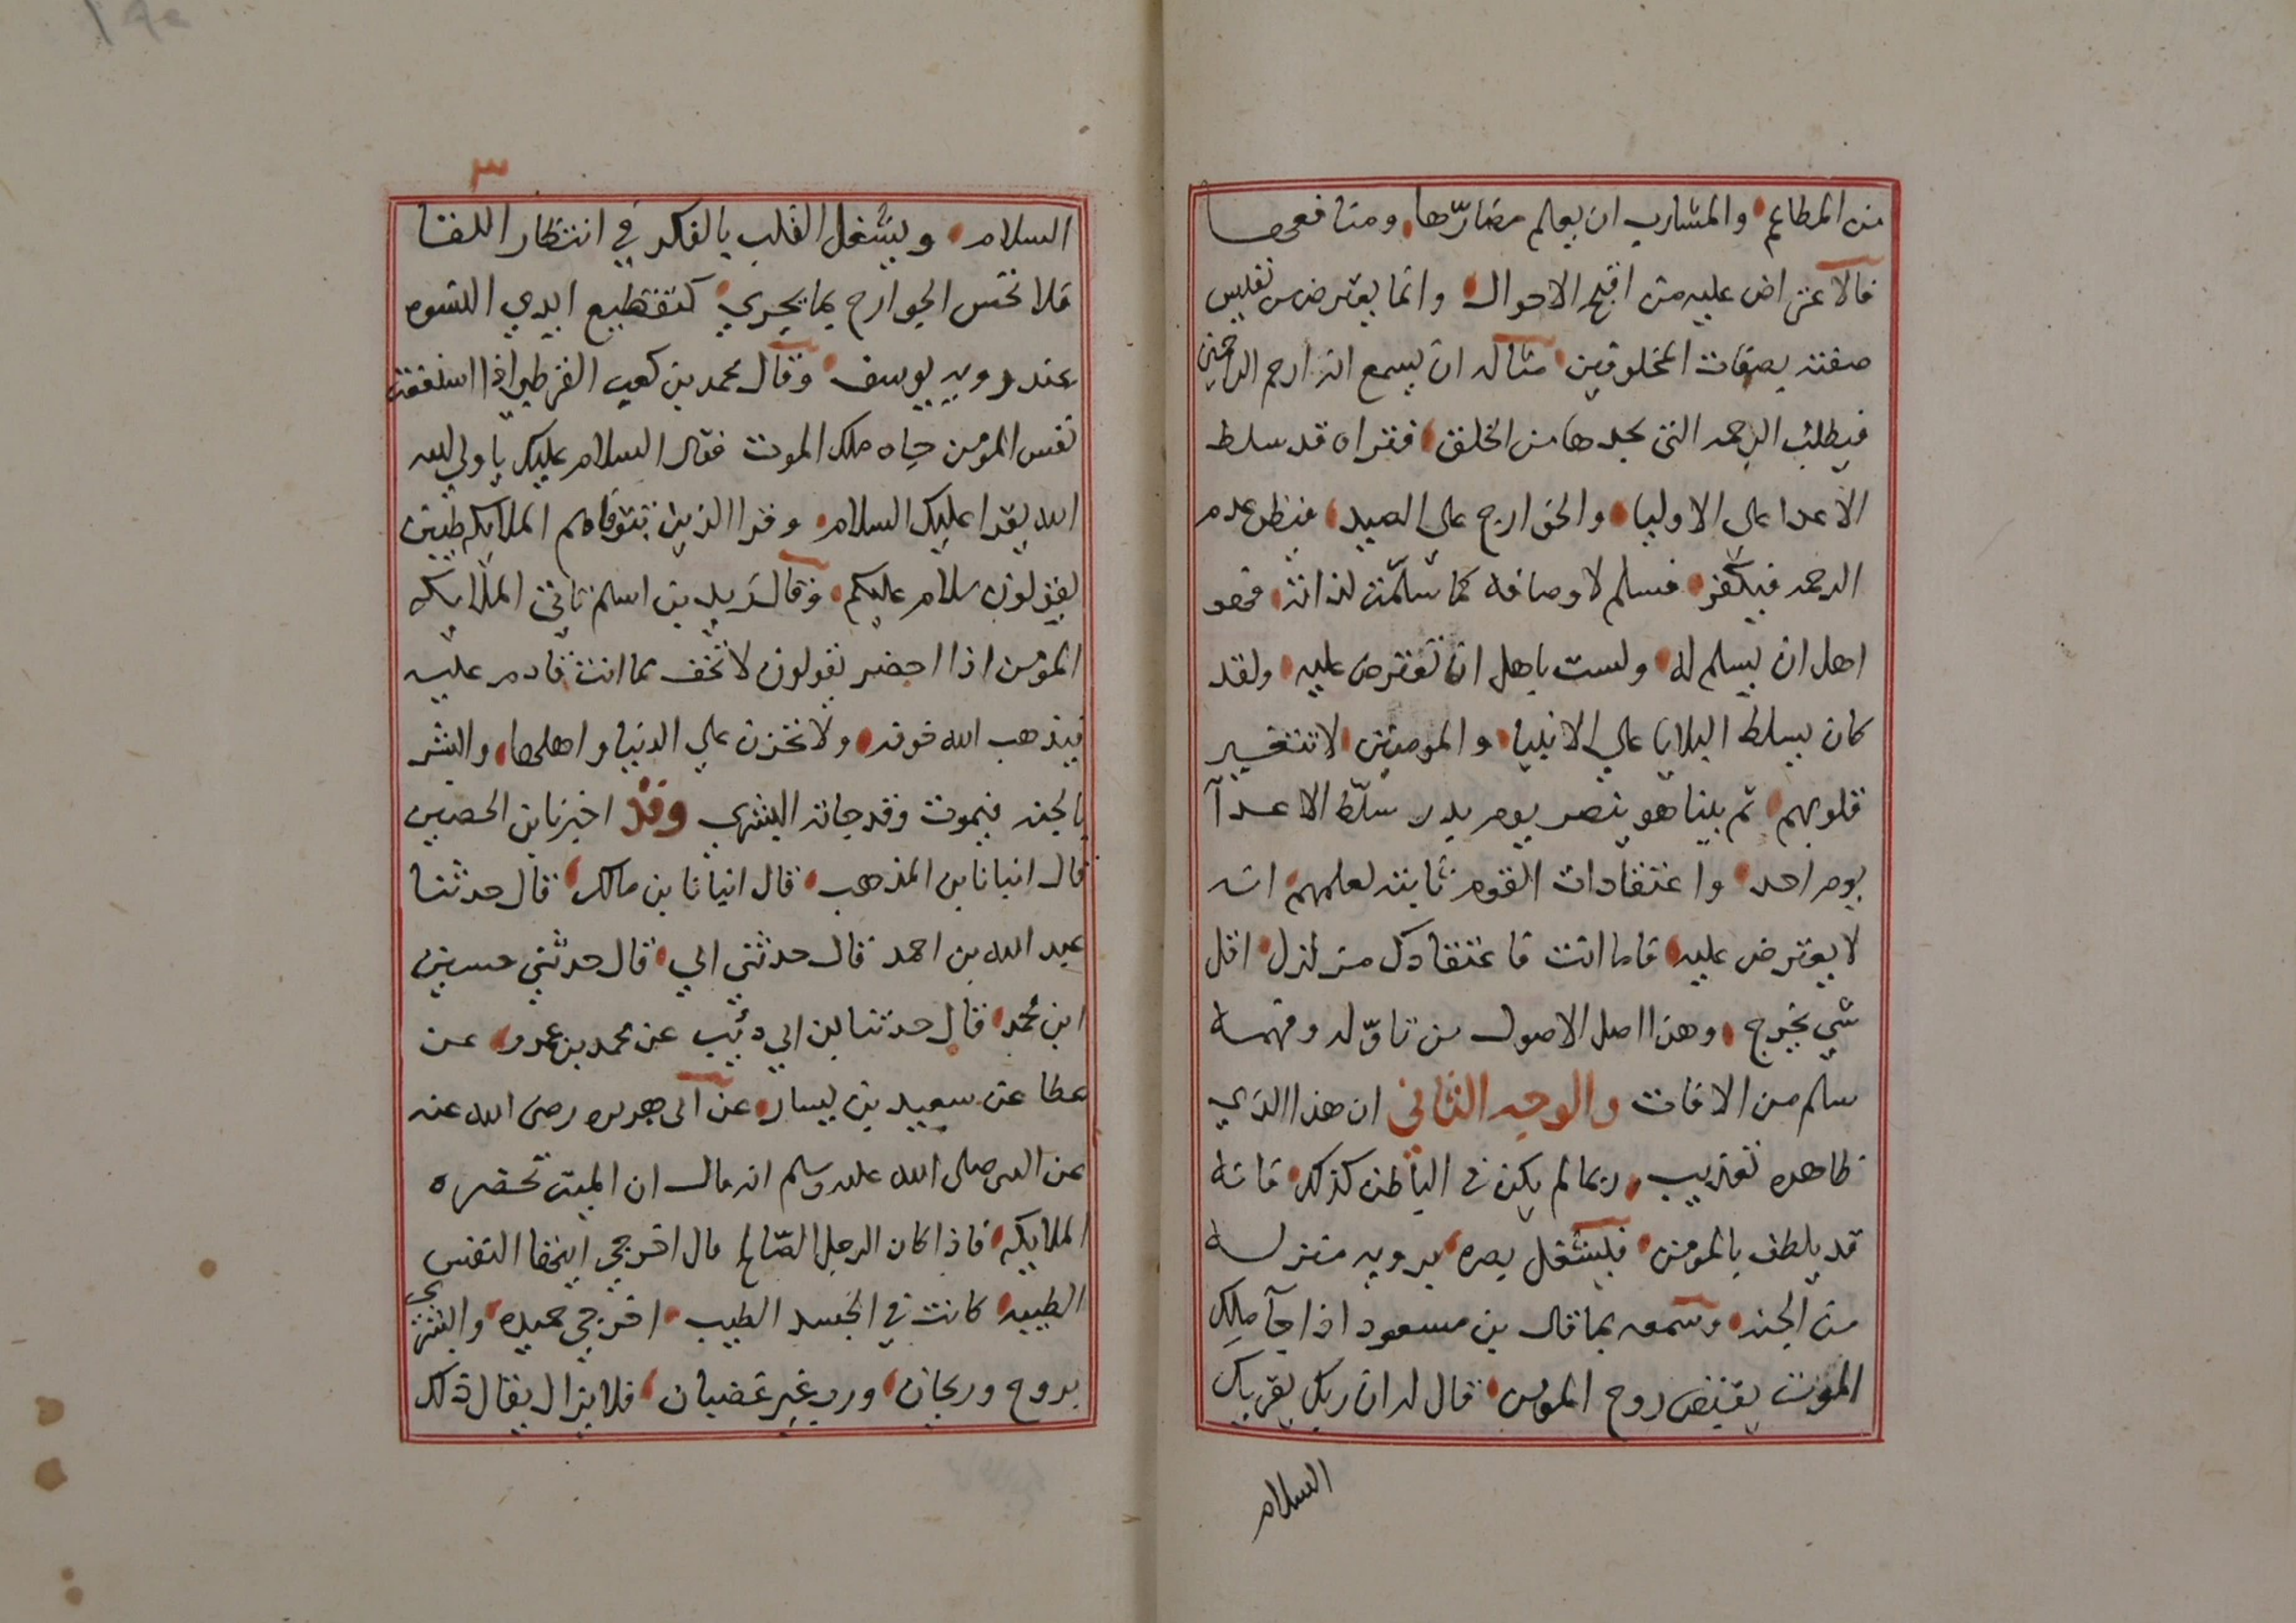 من المطاعم والمشارب ان يعلم مضارّها ومنافعها
فالاعتراض عليه من اقبح الاحوال وانما يعترض من تقليس
صفته بصفات المخلوقين مثاله ان يسمع انه ارحم الراحمين
فيطلب الرحمه التي يجدها من الخلق فتراه قد سلط
الاعدا على الاوليا والخوارج على الصيد فيظن عدم
الرحمه فيكفر فسلم لاوصافه كما سلّمت لذاته فهو
اهل ان يسلم له ولست باهل ان تعترض عليه ولقد
كان يسلط البلايا على الانبيا والمومنين لا تتغير
قلوبهم ثم بينا هو ينصر يوم بدر سلّط الاعدآ
يوم احد واعتقادات القوم ثابته لعلمهم انه
لا يعترض عليه فاما انت فاعتقادك متزلزل اقل
شي يخرج وهذا اصل الاصول من تاوّله وفهمه
سلم من الافات والوجه الثاني ان هذا الذي
ظاهره تعذيب ربما لم يكن في الباطن كذلك فانه
قد يلطف بالمومن فليشغل بصره برويه منزله
من الجنه وسمعه بما قال بن مسعود اذا جآ ملك
الموت يقبض روح المومن قال له ان ربك يقريك
السلام
٣
السلام ويشغل القلب بالفكر في انتظار اللقا
فلا تحس الجوارح بما يجري كتقطيع ايدي النسوه
عند رويه يوسف وقال محمد بن كعب القرظي اذا استنقعت
نفس المؤمن جاه ملك الموت فقال السلام عليك يا ولي الله
الله يقرا عليك السلام وقرا الذين تتوفاهم الملايكه طيبين
يقولون سلام عليكم وقال زيد بن اسلم تاتي الملايكه
المؤمن اذا احضر يقولون لا تخف مما انت قادم عليه
فيذهب الله خوفه ولا تحزن على الدنيا واهلها وابشر
بالجنه فيموت وقد جاته البشرى وقد اخبرنا بن الحصين
قال انبانا بن المذهب قال انبانا بن مالك قال حدثنا
عبد الله بن احمد قال حدثني ابي قال حدثني حسين
ابن محمد قال حدثنا بن ابي ذئيب عن محمد بن عمرو عن
عطا عن سعيد بن يسار عن ابي هريره رضي الله عنه
عن النبي صلى الله عليه وسلم انه قال ان الميت تحضره
الملايكه فاذا كان الرجل الصّالح قال اخرجي ايتها النفس
الطيبه كانت في الجسد الطيب اخرجي حميده وابشري
بروح وريحان ورب غير غضبان فلا يزال يقال ذلك